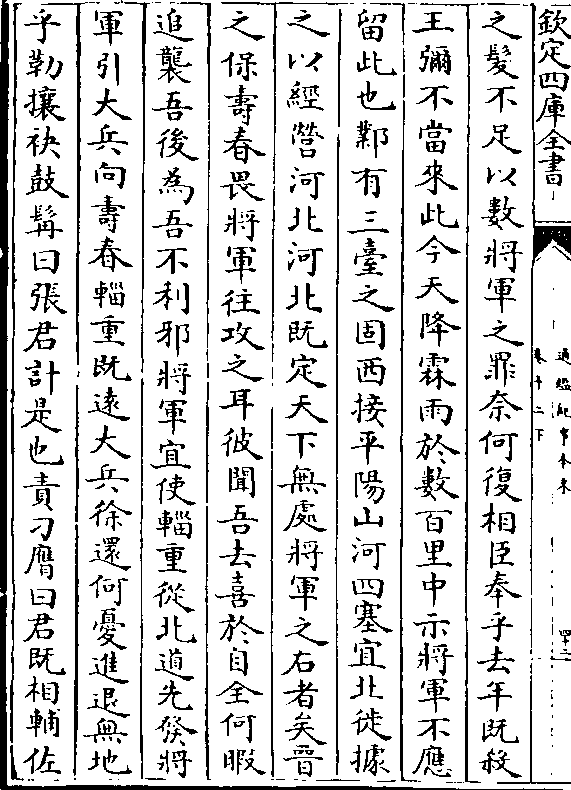 欽定四庫全書
通鑑紀事本末
卷十二下
四二
之髮不足以數將軍之罪奈何復相臣奉乎去年既殺
王彌不當來此今天降霖雨於數百里中示將軍不應
留此也鄴有三臺之固西接平陽山河四塞宜北徙據
之以經營河北河北既定天下無處將軍之右者矣晉
之保壽春畏將軍往攻之耳彼聞吾去喜於自全何暇
追襲吾後為吾不利邪將軍宜使輜重從北道先發將
軍引大兵向壽春輜重既遠大兵徐還何憂進退無地
乎勒攘袂鼓髯曰張君計是也責刁膺曰君既相輔佐